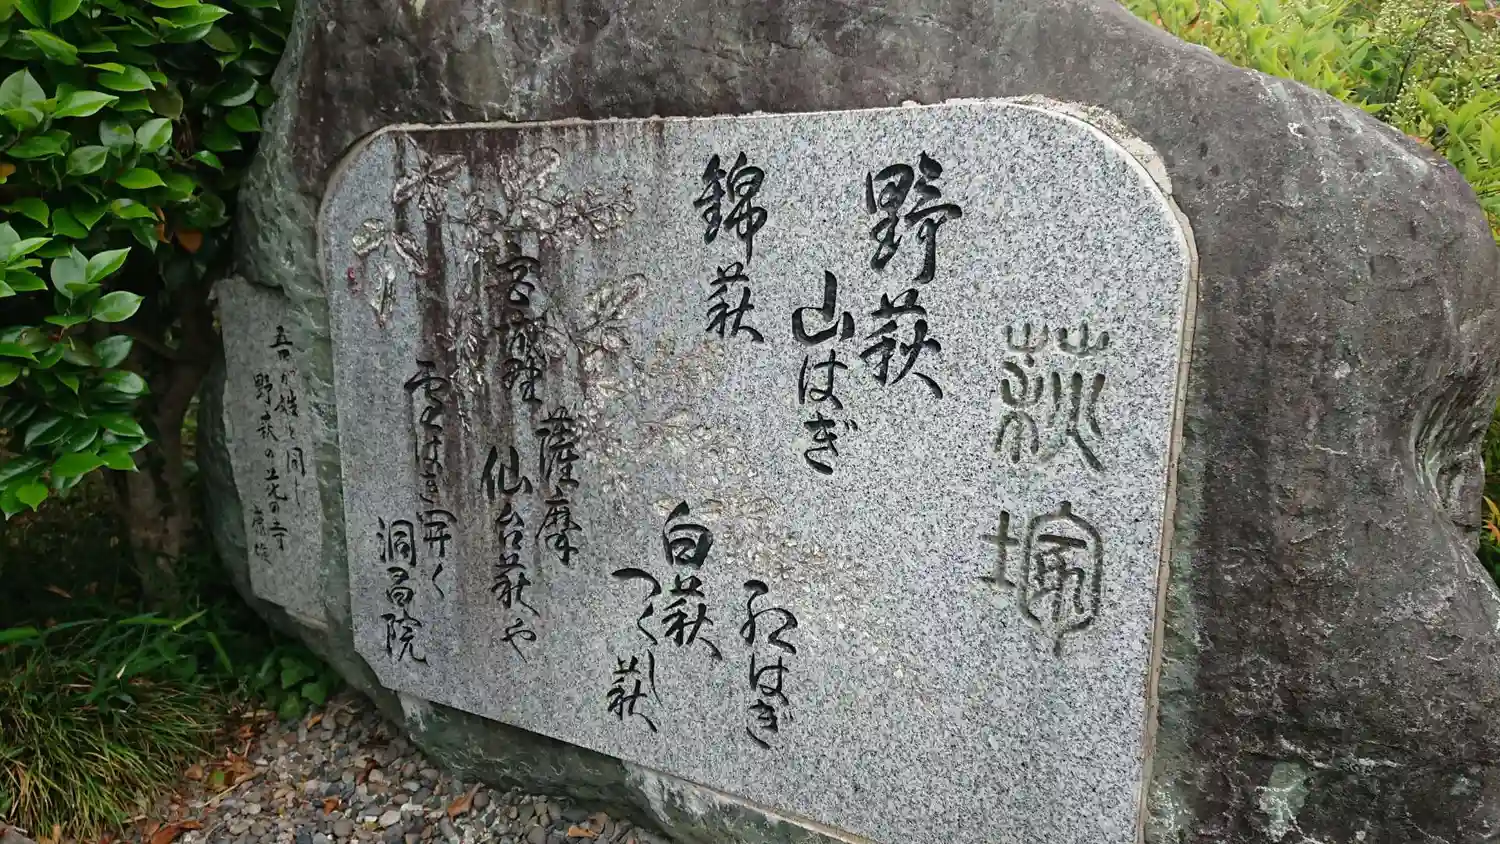 萩塚
野萩
山はぎ
紅はぎ
錦萩
白萩
つくし萩
薩摩
宮城野
仙台萩や
雲はぎ開く
洞昌院
吾が姓と同じ
野萩の萩の寺